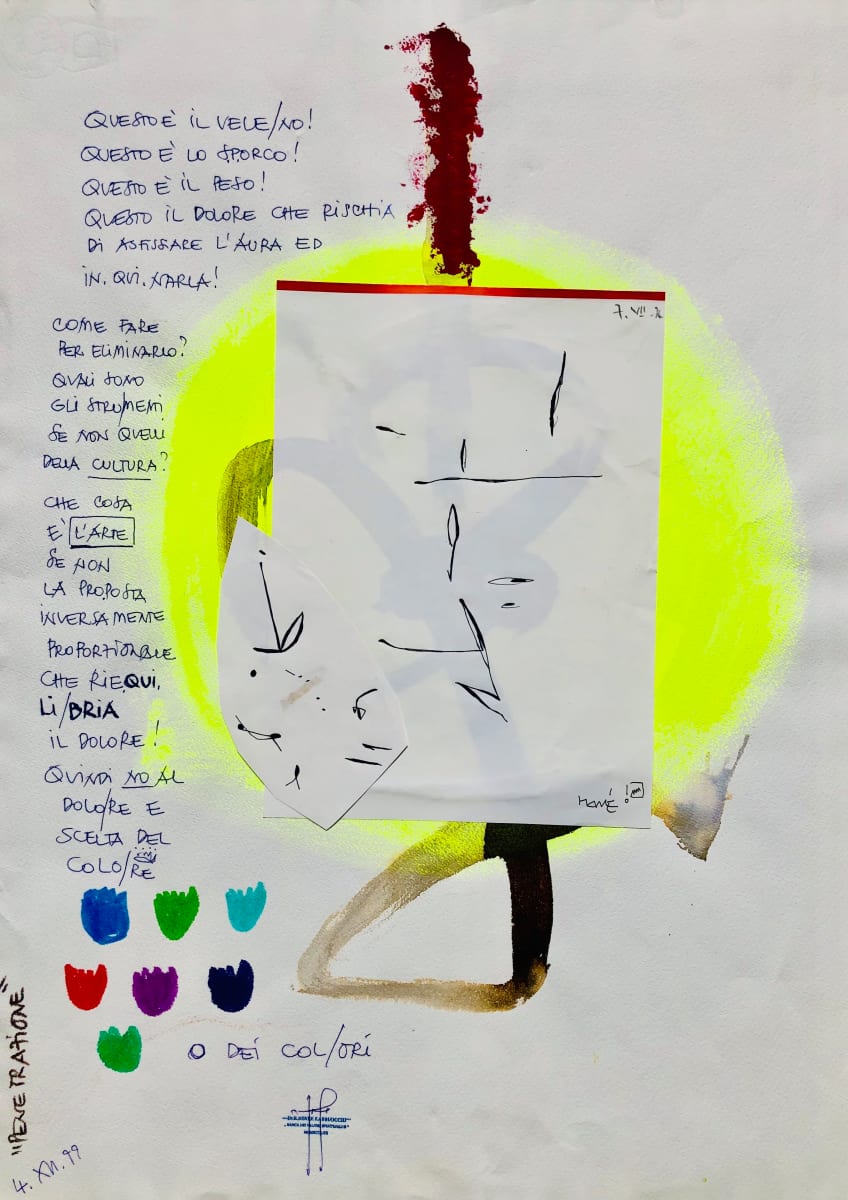 QUESTO È IL VELE/NO!
QUESTO È LO SPORCO!
QUESTO È IL PESO!
QUESTO IL DOLORE CHE RISCHIA
DI ASFISSARE L'AURA ED
IN.QUI.NARLA!
COME FARE
PER ELIMINARLO?
QUALI SONO
GLI STRU/MENTI
SE NON QUELLI
DELLA CULTURA?
CHE COSA
E' L'ARTE
SE NON
LA PROPOSTA
INVERSAMENTE
PROPORZIONALE
CHE RIE.QUI.
LI/BRIA
IL DOLORE!
QUINDI NO AL
DOLO/RE E
SCELTA DEL
COLO/RE
O DEI COL/ORI
"PENETRAZIONE"
4. XII. 99
7. VII